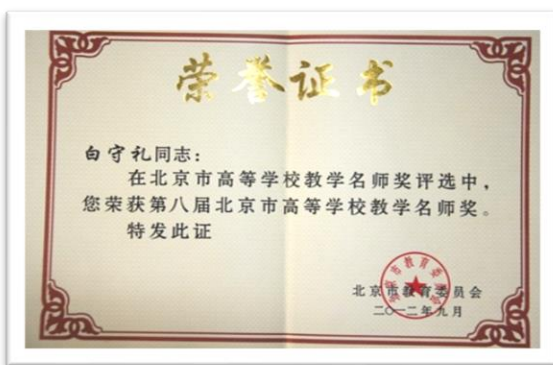 荣誉证书
白守礼同志：
在北京市高等学校教学名师奖评选中，
您荣获第八届北京市高等学校教学名师奖。
特发此证
北京市教育委员会
二〇一二年九月
北京市教育委员会